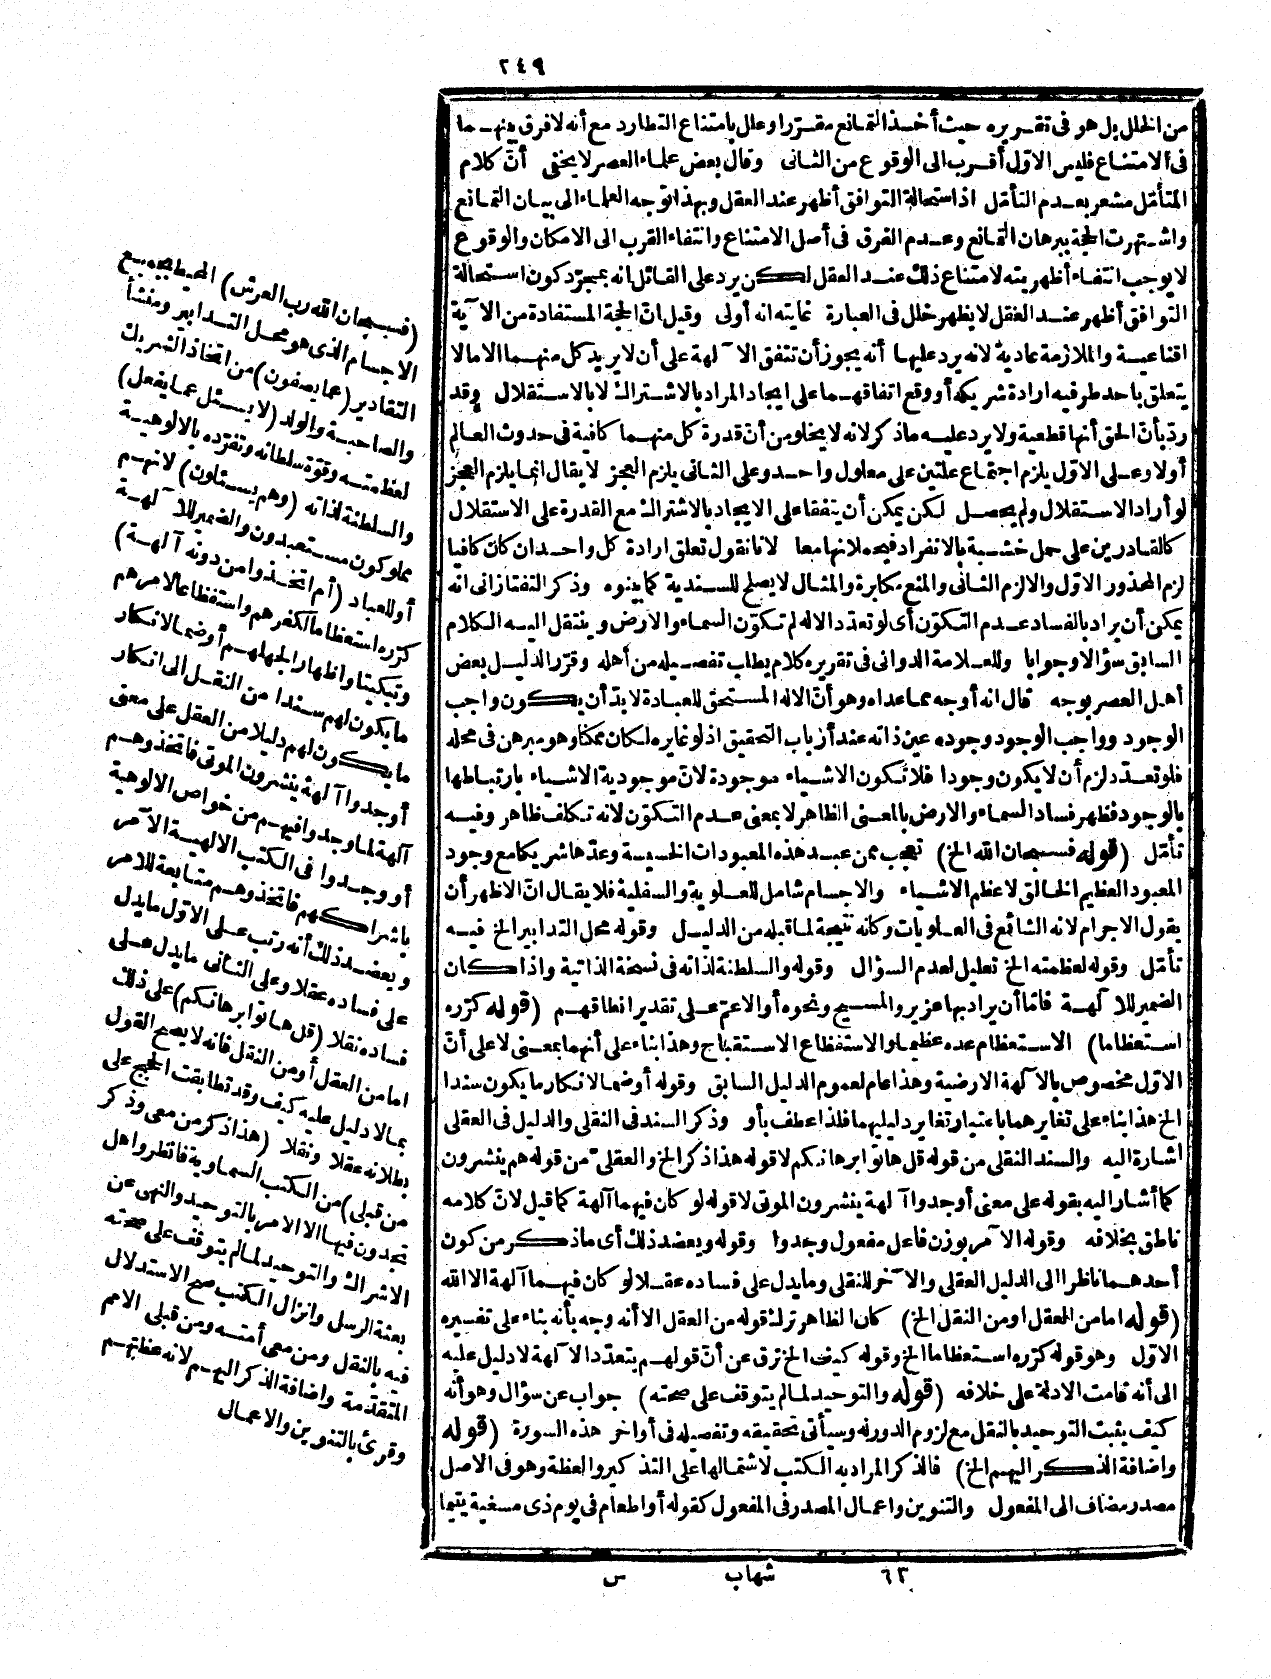 ٢٤٩
من الخلل بل هو فى تقريره حيث أخذ التمانع مقررا وعلل بامتناع التطارد مع أنه لا فرق بينهما
فى الامتناع فليس الاوّل أقرب الى الوقوع من الثانى وقال بعض علماء العصر لا يخفى أنّ كلام
المتأمّل مشعر بعدم التأمّل اذ استحالة التوافق أظهر عند العقل وبهذا توجه العلماء الى بيان التمانع
واشتهرت الحجة ببرهان التمانع وعدم الفرق فى أصل الامتناع وانتفاء القرب الى الامكان والوقوع
لا يوجب انتفاء أظهريته لامتناع ذلك عند العقل لكن يرد على القائل انه بمجرّد كون استحالة
التوافق أظهر عند العقل لا يظهر خلل فى العبارة غايته انه أولى وقيل انّ الحجة المستفادة من الآية
اقناعية والملازمة عادية لانه يرد عليها أنه يجوز أن تتفق الآلهة على أن لا يريد كل منهما الا ما لا
يتعلق باحد طرفيه ارادة شريكه أو وقع اتفاقهما على ايجاد المراد بالاشتراك لا بالاستقلال وقد
ردّ بأنّ الحق أنها قطعية ولا يرد عليه ما ذكر لانه لا يخلو من أنّ قدرة كل منهما كافية فى حدوث العالم
أولا وعلى الاوّل يلزم اجتماع علتين على معلول واحد وعلى الثانى يلزم العجز لا يقال انما يلزم العجز
لو أراد الاستقلال ولم يحصل لكن يمكن أن يتفقا على الايجاد بالاشتراك مع القدرة على الاستقلال
كالقادرين على حمل خشبة بالانفراد فيحملانها معا لانا نقول تعلق ارادة كل واحد ان كان كافيا
لزم المحذور الاوّل والا لزم الثانى والمنع مكابرة والمثال لا يصلح للسندية كما بينوه وذكر التفتازانى انه
يمكن أن يراد بالفساد عدم التكوّن أى لو تعدّد الاله لم تتكوّن السماء والارض وينتقل اليه الكلام
السابق سؤالا وجوابا وللعلامة الدوانى فى تقريره كلام يطلب تفصيله من أهله وقرّر الدليل بعض
أهل العصر بوجه قال انه أوجه مما عداه وهو أنّ الاله المستحق للعبادة لا بدّ أن يكون واجب
الوجود وواجب الوجود وجوده عين ذاته عند أرباب التحقيق اذ لو غايره لكان ممكنا وهو مبرهن فى محله
فلو تعدّد لزم أن لا يكون وجودا فلا تكون الاشياء موجودة لانّ موجودية الاشياء بارتباطها
بالوجود فظهر فساد السماء والارض بالمعنى الظاهر لا بمعنى عدم التكوّن لانه تكلف ظاهر وفيه
تأمّل (قوله فسبحان الله الخ) تعجب ممن عبد هذه المعبودات الخسيسة وعدّها شريكا مع وجود
المعبود العظيم الخالق لا عظم الاشياء والاجسام شامل للعلوية والسفلية فلا يقال انّ الاظهر أن
يقول الاجرام لانه الشائع فى العلويات وكانه نتيجة لما قبله من الدليل وقوله محل التدابير الخ فيه
تأمّل وقوله لعظمته الخ تعليل لعدم السؤال وقوله والسلطنة لذاته فى نسخة الذاتية واذا كان
الضمير للآلهة فامّا أن يراد بها عزير والمسيح ونحوه أو الاعمّ على تقدير انطاقهم (قوله كرّره
استعظاما) الاستعظام عده عظيما والاستفظاع الاستقباح وهذا بناء على أنهما بمعنى لا على أنّ
الاوّل مخصوص بالآلهة الارضية وهذا عام لعموم الدليل السابق وقوله أو ضما لانكار ما يكون سندا
الخ هذا بناء على تغايرهما باعتبار تغاير دليليهما فلذا عطف بأو وذكر السند فى النقلى والدليل فى العقلى
اشارة اليه والسند النقلى من قوله قل هاتوا برهانكم لا قوله هذا ذكر الخ والعقلى من قوله هم ينشرون
كما أشار اليه بقوله على معنى أوجدوا آلهة ينشرون الموتى لا قوله لو كان فيهما آلهة كما قيل لانّ كلامه
ناطق بخلافه وقوله الآمر بوزن فاعل مفعول وجدوا وقوله ويعضد ذلك أى ما ذكر من كون
أحدهما ناظرا الى الدليل العقلى والآخر للنقلى وما يدل على فساده عقلا لو كان فيهما آلهة الا الله
(قوله اما من العقل او من النقل الخ) كان الظاهر ترك قوله من العقل الا أنه وجه بأنه بناء على تفسيره
الاوّل وهو قوله كرّره استعظاما الخ وقوله كيف الخ ترق عن أنّ قولهم بتعدّد الآلهة لا دليل عليه
الى أنه قامت الادلة على خلافه (قوله والتوحيد لما لم يتوقف على صحته) جواب عن سؤال وهو أنه
كيف يثبت التوحيد بالنقل مع لزوم الدور له وسيأتى تحقيقه وتفصيله فى أواخر هذه السورة (قوله
واضافة الذكر اليهم الخ) فالذكر المراد به الكتب لاشتمالها على التذكير والعظة وهو فى الاصل
مصدر مضاف الى المفعول والتنوين واعمال المصدر فى المفعول كقوله أو اطعام فى يوم ذى مسغبة يتيما
(فسبحان الله رب العرش) المحيط بجميع
الاجسام الذى هو محل التدابير ومنشأ
التقادير (عما يصفون) من اتخاذ الشريك
والصاحبة والولد (لا يسئل عما يفعل)
لعظمته وقوّة سلطانه وتفرّده بالالوهية
والسلطنة لذاته (وهم يسئلون) لانهم
مملوكون مستعبدون والضمير للآلهة
أو للعباد (أم اتخذوا من دونه آلهة)
كرّره استعظاما لكفرهم واستفظاعا لامرهم
وتبكيتا واظهارا لجهلهم أو ضما لانكار
ما يكون لهم سندا من النقل الى انكار
ما يكون لهم دليلا من العقل على معنى
أوجدوا آلهة ينشرون الموتى فاتخذوهم
آلهة لما وجدوا فيهم من خواص الالوهية
أو وجدوا فى الكتب الالهية الآمر
باشراكهم فاتخذوهم متابعة للامر
ويعضد ذلك أنه رتب على الاوّل ما يدل
على فساده عقلا وعلى الثانى ما يدل على
فساده نقلا (قل هاتوا برهانكم) على ذلك
اما من العقل أو من النقل فانه لا يصح القول
بما لا دليل عليه كيف وقد تطابقت الحجج على
بطلانه عقلا ونقلا (هذا ذكر من معى وذكر
من قبلى) من الكتب السماوية فانظروا هل
تجدون فيها الا الامر بالتوحيد والنهى عن
الاشراك والتوحيد لما لم يتوقف على صحته
بعثة الرسل وانزال الكتب صح الاستدلال
فيه بالنقل ومن معى أمته ومن قبلى الامم
المتقدّمة واضافة الذكر اليهم لانه عظاتهم
وقرئ بالتنوين والاعمال
٦٣ شهاب س